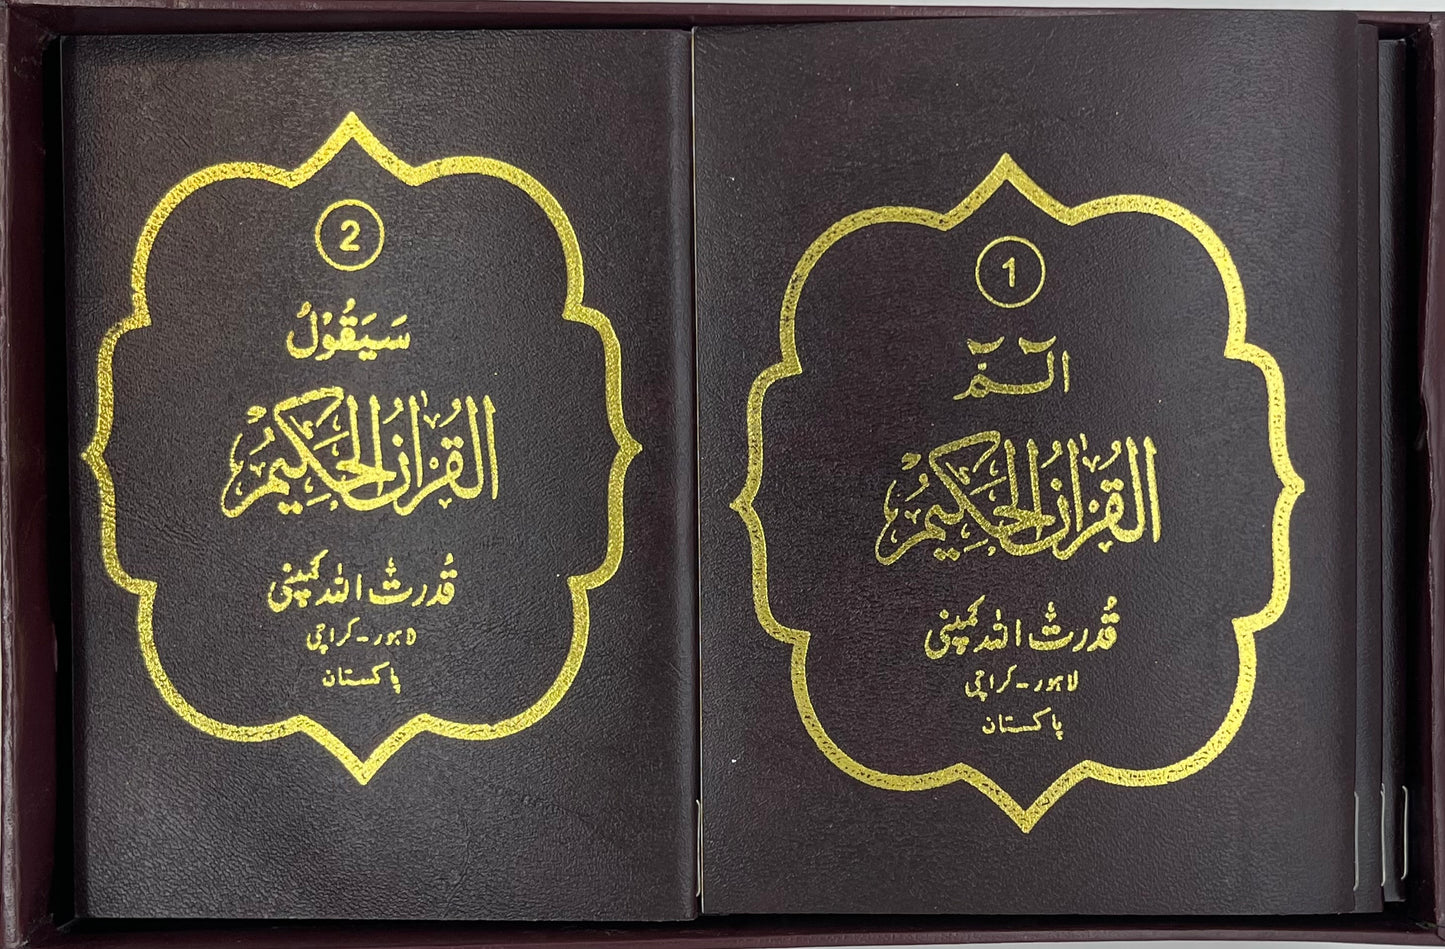 1
الٓـمّٓ
القرآن الحکیم
قُدرت اللہ کمپنی
لاہور - کراچی
پاکستان
2
سَیَقُوْلُ
القرآن الحکیم
قُدرت اللہ کمپنی
لاہور - کراچی
پاکستان